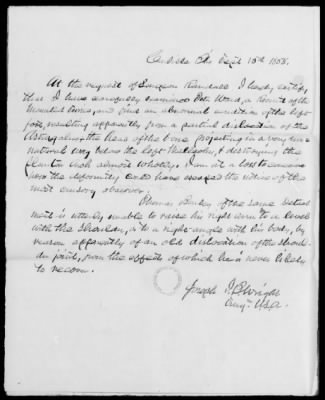 Carlisle Pa Sept 15th 1858.
At the request of Surgeon I hereby certify,
that I have carefully examined Ward, a Recruit of the
Mounted and find an abnormal condition of the left
foot, resulting apparently from a partial dislocation of the
Astragalus, the head of the bone projecting in a very
natural way below the left Malleolus, & destroying the
Plantar Arch almost wholly. I am at a loss to conceive
how the deformity could have escaped the notice of the
most cursory observer.
Thomas of the same Detach
ment is utterly unable to raise his right arm to a level
with the Shoulder, or to a right angle with his body, by
reason apparently of an old dislocation of the shoul-
der joint, from the effects of which he is never likely
to recover.
Joseph Wright
Surgn USA.